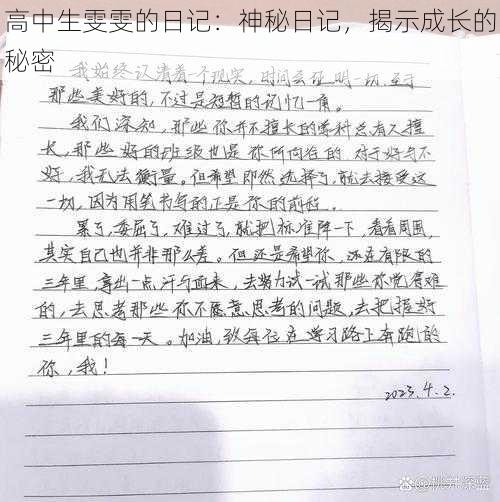 高中生雯雯的日记：神秘日记，揭示成长的
秘密
我始终认清着一个现实，时间会证明一切，至于
那些美好的，不过是短暂的记忆一角。
我们深知，那些你并不擅长的学科总有人擅
长，那些好的班级也是你所向往的，对于好与不
好，我无法衡量。但希望即然选择了，就去接受这
一切，因为用笔书写的正是你的前程。
累了，委屈了，难过了，就把标准降一下，看看周围，
其实自己也并非那么差。但还是希望你，还在有限的
三年里，拿出一点汗与血来，去努力试一试那些你觉着难
的，去思考那些你不愿意思考的问题，去把握好
三年里的每一天。加油，致每位在学习路上奔跑的
你，我！
2023.4.2.